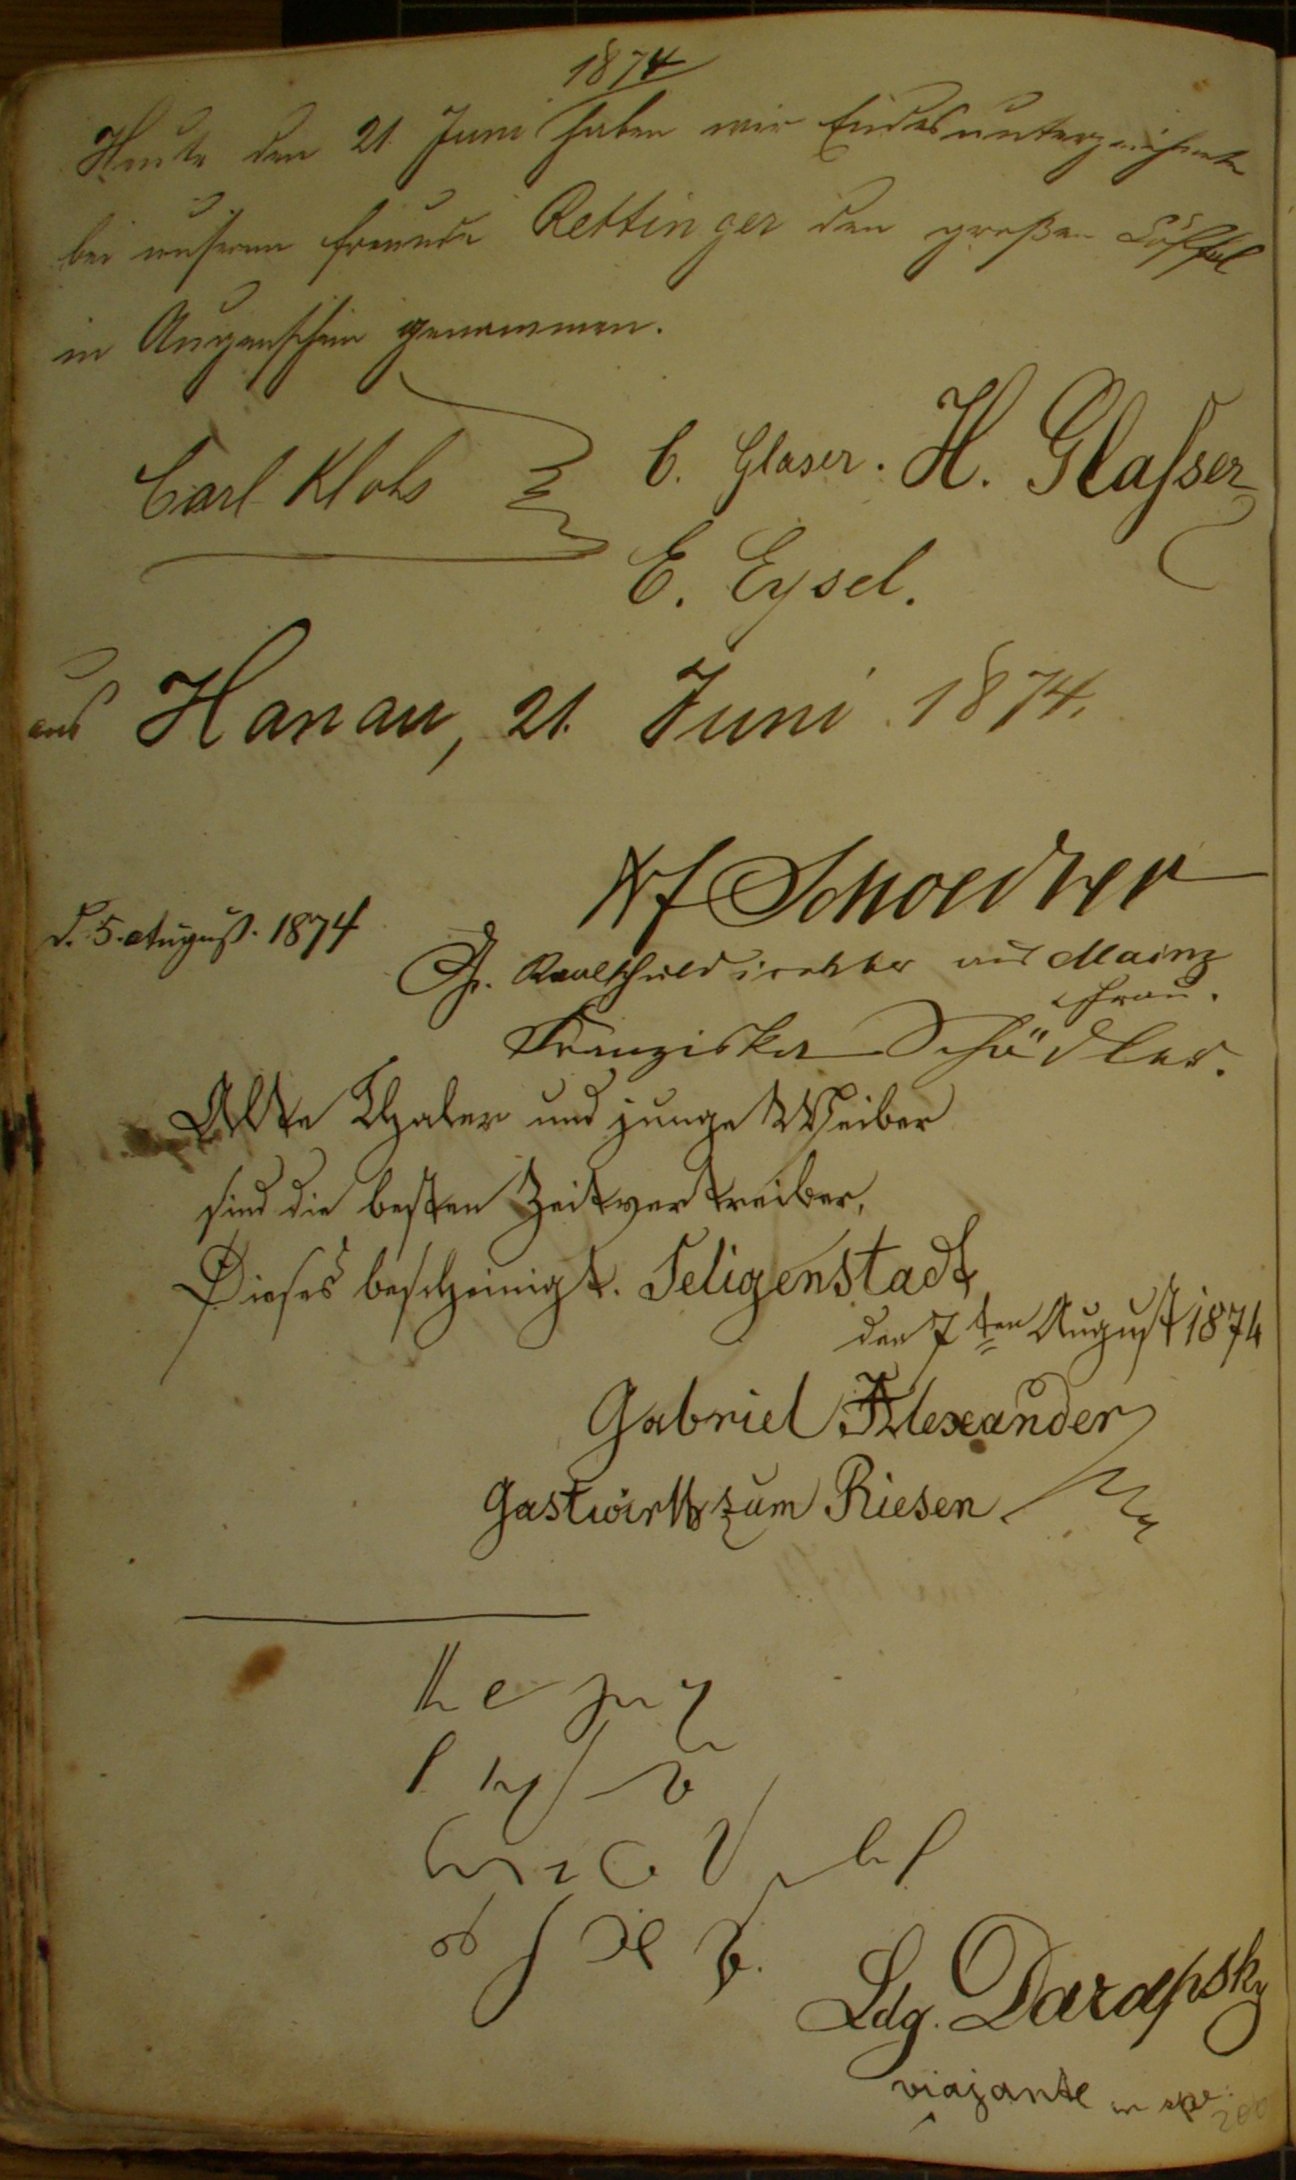 1874
Heute den 21. Juni haben wir Endesunterzeichnete
bei unserm Freunde Rettinger den großen Löffel
in Augenschein genommen.
Carl Klohs C. Glaser. H. Glasser
E. Eysel.
aus Hanau, 21. Juni 1874.
Schoedler
d. 5. August. 1874
Gr. Realschuldirektor aus Mainz
Frau.
Franziska Schödler.
Alte Thaler und junge Weiber
sind die besten Zeitvertreiber,
Dieses bescheinigt. Seligenstadt
den 7ten August 1874
Gabriel Alexander
Gastwirth zum Riesen
Ldg. Darapsky
viajante in spe.